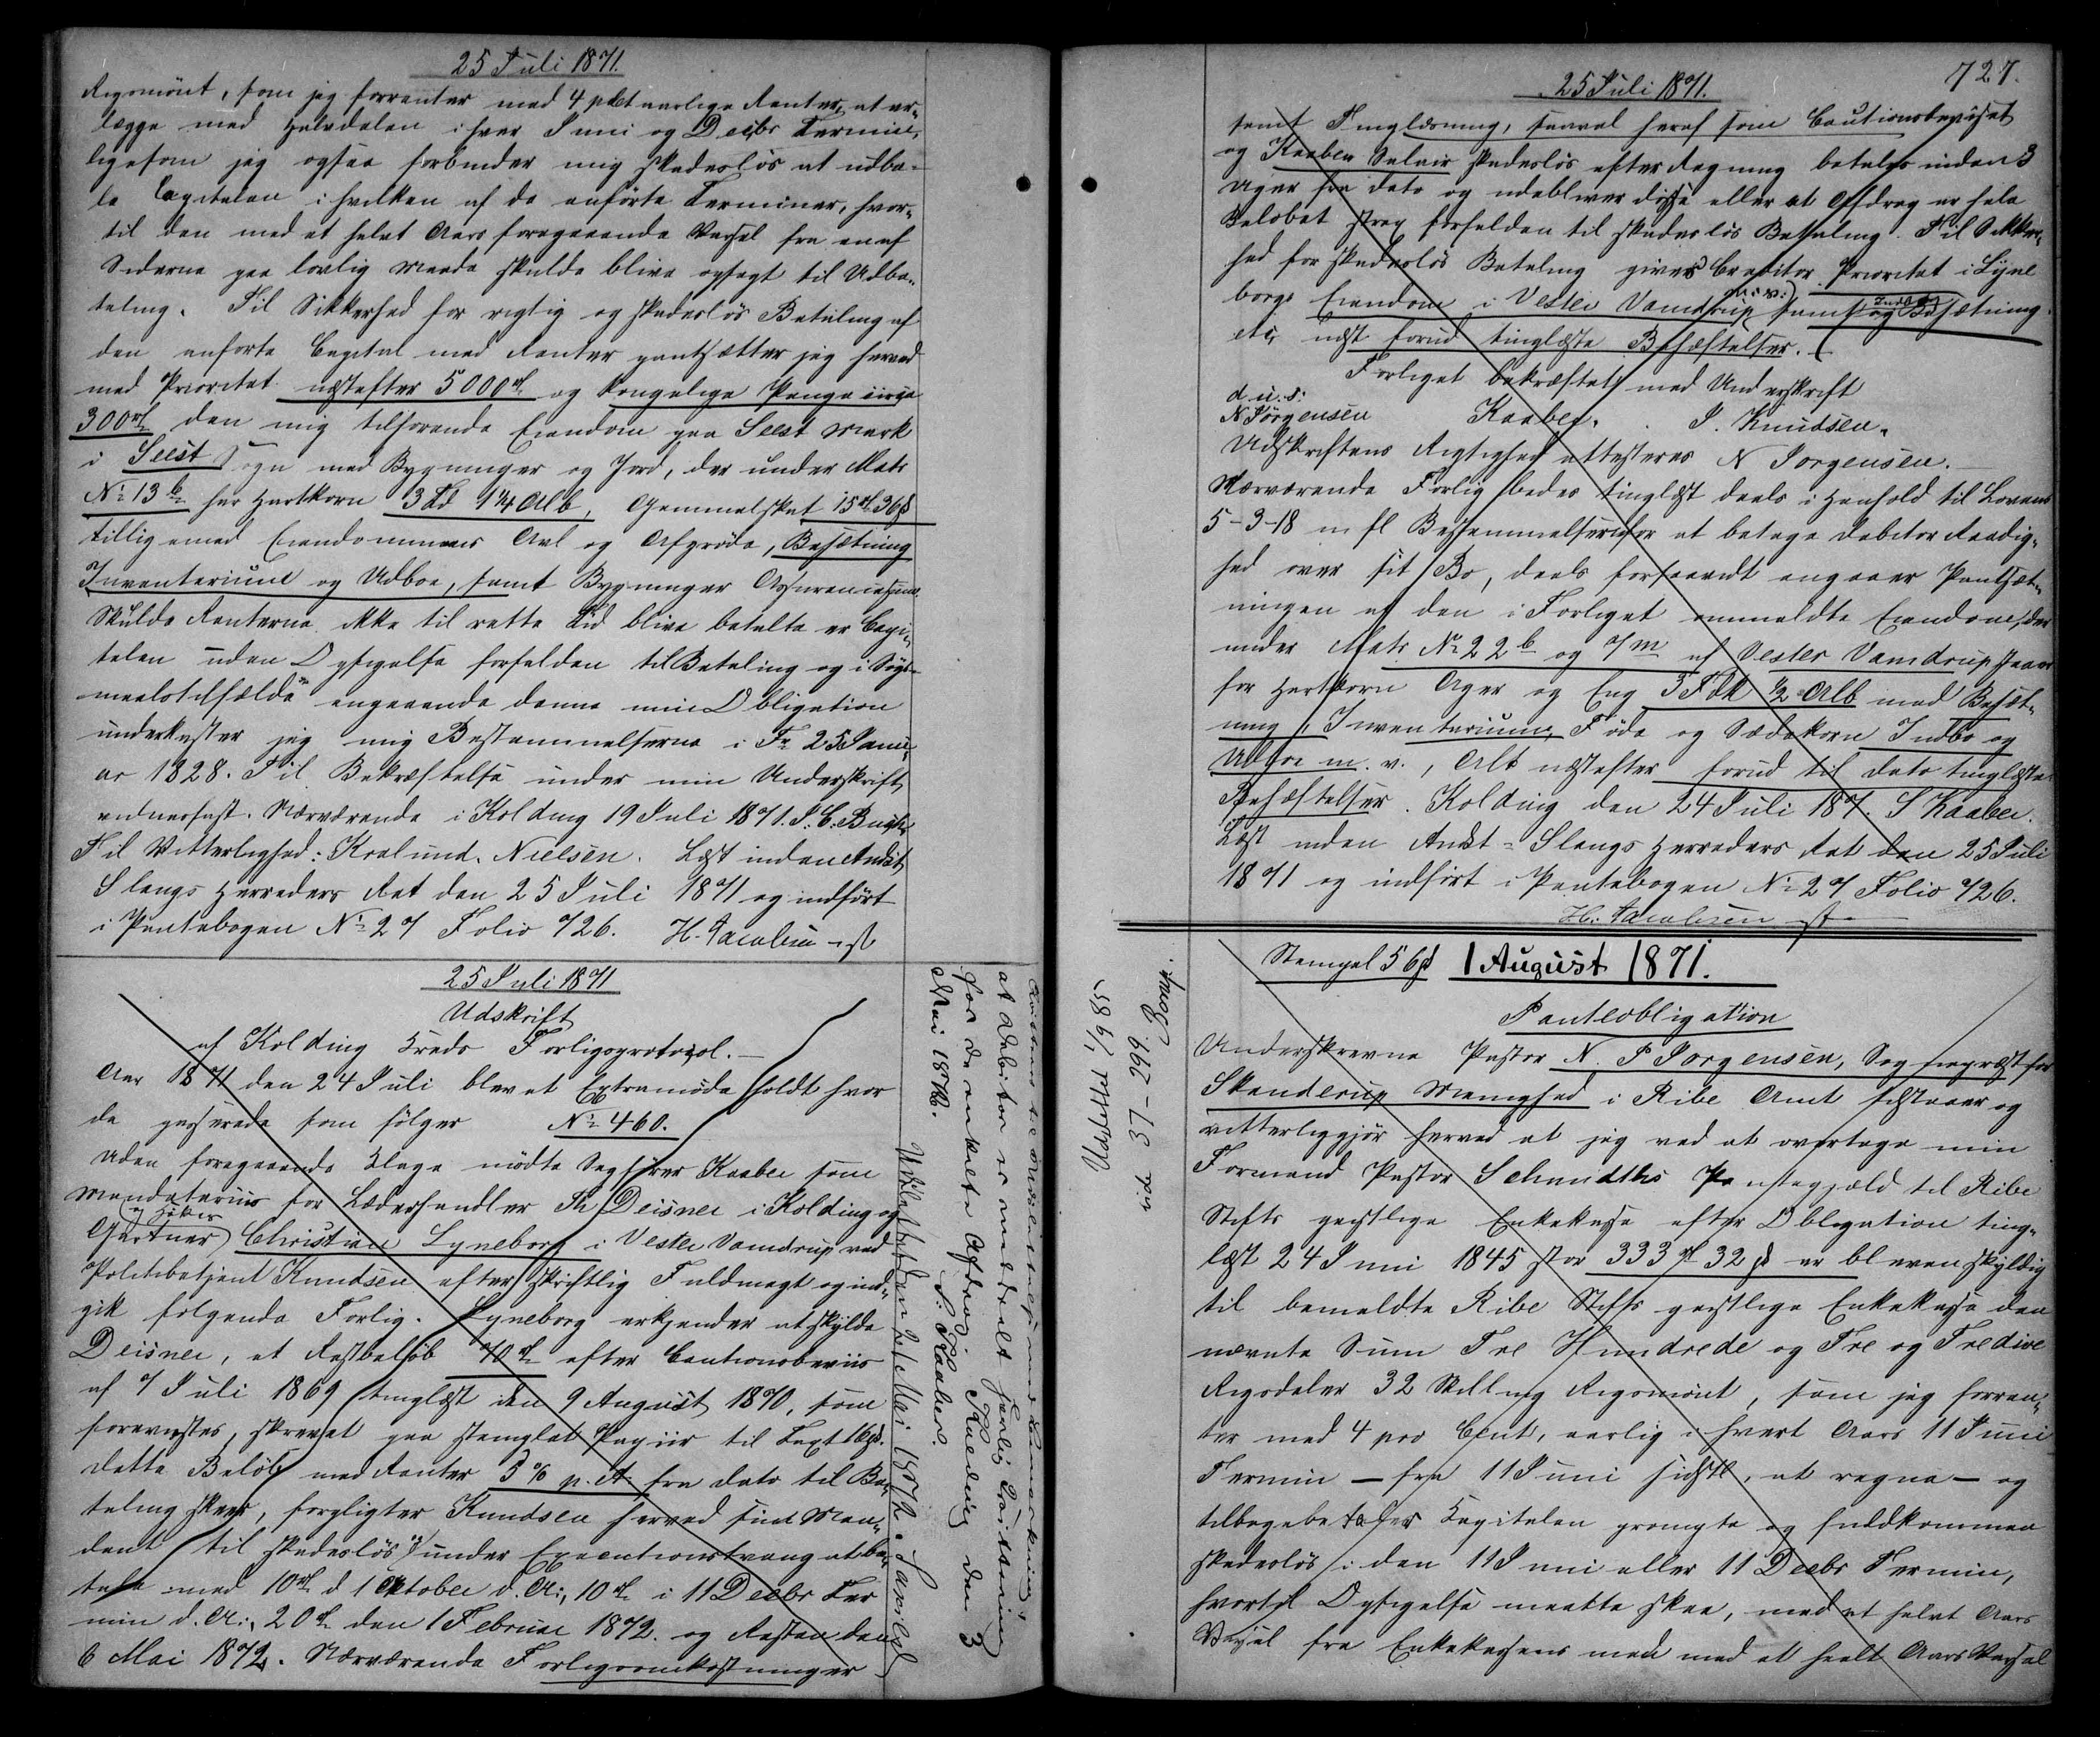 25 Juli 1871.
Rigsmønt, som jeg forrenter med 4 pCt aarlige Renter, at er-
lægge med Halvdelen i hver Juni og Decbr Termin,
ligesom jeg ogsaa forbinder mig skadesløs at udbeta-
le Capitalen i hvilken af de anførte Terminer, hvor-
til den med et halvt Aars foregaaende Varsel fra en af
Siderne paa lovlig Maade skulde blive opsagt til Udbe-
taling. Til Sikkerhed for rigtig og skadesløs Betaling af
den anførte Capital med Renter pantsætter jeg herved
med Prioritet næstefter 5000 rd og kongelige Penge circa
300 rd den mig tilhørende Eiendom paa Seest Mark
i Seest Sogn med Bygninger og Jord, der under Matr
No 13 b har Hartkorn 3 Td 1¼ Alb, Gammelskat 15 rd 36 ß
tilligemed Eiendommens Avl og Afgrøde, Besætning
Inventarium og Udboe, samt Bygninger Assurancesum.
Skulde Renterne ikke til rette Tid blive betalte er Capi-
talen uden Opsigelse forfalden til Betaling og i Søgs-
maalstilfælde angaaende denne min Obligation
underkaster jeg mig Bestemmelserne i Fr 25 Janu-
ar 1828. Til Bekræftelse under min Underskrift
vidnerfast. Nærværende i Kolding 19 Juli 1871. J. C. Buch
Til Vitterlighed: Kralund. Nielsen. Læst inden Andst
Slaugs Herreders Ret den 25 Juli 1871 og indført
i Pantebogen No 27 Folio 726. H. Jacobsen cst
25 Juli 1871
Udskrift
af Kolding Kreds Forligsprotocol.
Aar 1871 den 24 Juli blev et Extramøde holdt hvor
da passerede som følger No 460.
Uden foregaaende Klage mødte Sagfører Kaaber som
Mandatarius for Læderhandler Deisner i Kolding og
og Høker
Gartner Christian Lyneborg i Vester Vamdrup ved
Politibetjent Knudsen efter skriftlig Fuldmagt og ind-
gik følgende Forlig. Lyneborg erkjender at skylde
Deisner, et Restbeløb 70 rd efter Cautionsbeviis
af 7 Juli 1869 tinglæst den 9 August 1870, som
forevistes, skrevet paa stemplet Papiir til Taxt 16 ß.
Dette Beløb med Renter 5 % p. A. fra dato til Be-
taling skeer, forpligter Knudsen herved sin Man-
dant til skadesløs under Executionstvang at be-
tale med 10 rd d 1 Oktober d. A., 10 rd i 11 Decbr Ter
min d. A:, 20 rd den 1 Februar 1872. og Resten den
6 Mai 1872. Nærværende Forligsomkostninger
at Debitor er meddeelt
for de enkelte Afdrag. Kolding den 3
Mai 1872. S. Kaaber.
Udslettet den Mai 1872.
727.
25 Juli 1871.
samt Tinglæsning, saavel heraf som Cautionsbeviset
og Kaaber Salair skadesløs efter Regning betales inden 3
Uger fra dato og udebliver disse eller et Afdrag er hele
Beløbet strax forfalden til skadesløs Betaling. Til Sikker-
hed for skadesløs Betaling gives Creditor Prioritet i Lyne
borgs Eiendom i Vester Vamdrup samt Besætning
etc, næst forud tinglæste Behæftelser.
Forliget bekræftet med Underskrift
d. u. s.
N Jørgensen Kaaber. J. Knudsen.
Udskriftens Rigtighed attesteres N Jørgensen.
Nærværende Forlig bedes tinglæst deels i Henhold til Lovens
5-3-18 m fl Bestemmelser for at betage Debitor Raadig-
hed over sit Bo, deels forsaavidt angaaer Pantsæt-
ningen af den i Forliget ommeldte Eiendom, der
under Matr No 22 b og 7 m af Vester Vamdrup staaer
for Hartkorn Ager og Eng 3 Fdk ½ Alb med Besæt-
ning, Inventarium, Føde og Sædekorn Indbo og
Udboe m. v., Alt næstefter forud til dato tinglæste
Behæftelser. Kolding den 24 Juli 187. S Kaaber.
Læst inden Andst-Slaugs Herreders Ret den 25 Juli
1871 og indført i Pantebogen No 27 Folio 726.
H. Jacobsen cst
Stempel 56 ß 1 August 1871.
Panteobligation
Underskrevne Pastor N. P Jørgensen, Sognepræst for
Skanderup Menighed i Ribe Amt tilstaaer og
vitterliggjør herved at jeg ved at overtage min
Formand Pastor Schmidths Præstegjæld til Ribe
Stifts geistlige Enkekasse efter Obligation ting-
læst 24 Juni 1845 stor 333 rd 32 ß er bleven skyldig
til bemeldte Ribe Stifts geistlige Enkekasse den
nævnte Sum Tre Hundrede og Tre og Tredive
Rigsdaler 32 Skilling Rigsmønt, som jeg forren-
ter med 4 pro Cent, aarlig i hvert Aars 11 Juni
Termin - fra 11 Juni sidstl. at regne - og
tilbagebetaler Kapitalen prompte og fuldkommen
skadesløs i den 11 Juni eller 11 Decbr Termin,
hvortil Opsigelse maatte skee, med et halvt Aars
Varsel fra Enkekassens men med et heelt Aars Varsel
Udslettet 1/9 85
vide 37-299